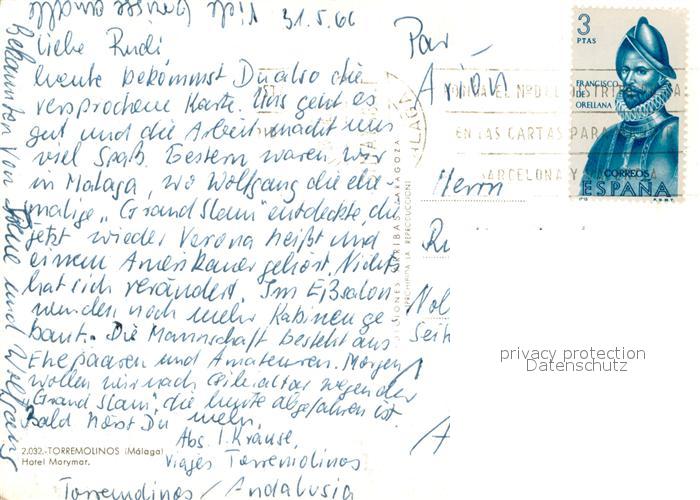 31.5.66
Liebe Rudi
heute bekommst Du also die
versprochene Karte. Uns geht es
gut und die Arbeit macht uns
viel Spaß. Gestern waren wir
in Malaga, wo Wolfgang die ehe-
malige „Grand Slam" entdeckte, die
jetzt wieder Verona heißt und
einem Amerikaner gehört. Nichts
hat sich verändert. Im Eißsalon
wurden noch mehr Kabinen ge-
baut. Die Mannschaft besteht aus
Ehepaaren und Amateuren. Morgen
wollen wir nach wegen der
„Grand Slam", die heute abgefahren ist.
Bald hörst Du mehr.
Viele Grüsse
Bekannten von Irene und Wolfgang
Abs. I. Krause,
Viajes Torremolinos
Torremolinos / Andalusia
2.032.-TORREMOLINOS (Málaga)
Hotel Marymar.
ZARAGOZA
PROHIBIDA LA REPRODUCCION
Par
Avión
Herrn
MALAGA
EN LAS CARTAS PARA
BARCELONA Y
3
PTAS
FRANCISCO
DE
ORELLANA
CORREOS
ESPAÑA
privacy protection
Datenschutz